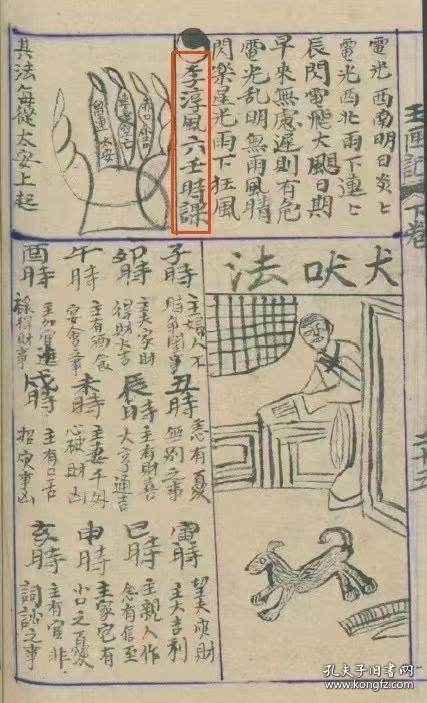 玉匣記 下卷
二十五
電光西南明日炎〻
電光西北雨下連〻
辰閃電飛大颶日期
早來無慮遲則有危
電光乱明無雨風晴
閃樂星光雨下狂風
李淳風六壬時課
太安
赤口
小吉
空亡
其法每從太安上起
犬吠法
子時 主婦人不
時爭鬧事
丑時 無別之事
寅時 主大吉利
卯時 主夫家財
得財大吉
辰時 主有財喜
大亨通吉
巳時 主親人作
念有信至
午時 主有酒食
宴會之事
未時 主妻千外
心破財凶
申時 主家宅有
小口之憂
酉時 主加官進
祿得財事
戌時 主有口舌
招灾事凶
亥時 主有官非
詞訟之事
孔夫子旧书网
www.kongfz.com